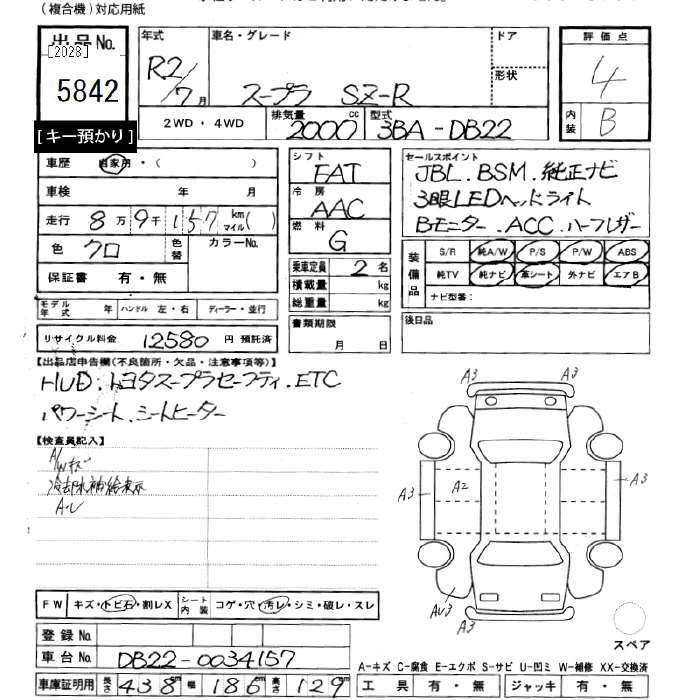 (複合機)対応用紙
出品No.
[2028]
5842
[キー預かり]
年式
R2/7月
車名・グレード
スープラ SZ-R
ドア
形状
評価点
4
内装
B
2WD・4WD
排気量
2000cc
型式
3BA-DB22
車歴 自家用・( )
車検 年 月
走行 8万9千157km マイル( )
色 クロ 色替 カラーNo.
保証書 有・無
モデル年式 ハンドル 左・右 ディーラー・並行
リサイクル料金 12580 円 預託済
シフト
FAT
冷房
AAC
燃料
G
乗車定員 2 名
積載量 kg
総重量 kg
書類期限
月 日
セールスポイント
JBL.BSM.純正ナビ
3眼LEDヘッドライト
Bモニター.ACC.ハーフレザー
装備品
S/R 純A/W P/S P/W ABS
純TV 純ナビ 革シート 外ナビ エアB
ナビ型番:
後日品
【出品店申告欄(不良箇所・欠品・注意事項等)】
HUD.トヨタスープラセーフティ.ETC
パワーシート.シートヒーター
【検査員記入】
A/Wキズ
冷却水補給表示
A3 A3
A3 A2 A3
A3
スペア
FW キズ・トビ石・割レX シート内装 コゲ・穴・汚レ・シミ・破レ・スレ
登録No.
車台No. DB22-0034157
車庫証明用 長さ 438m 幅 186m 高さ 129m
A-キズ C-腐食 E-エクボ S-サビ U-凹ミ W-補修 XX-交換済
工具 有・無 ジャッキ 有・無